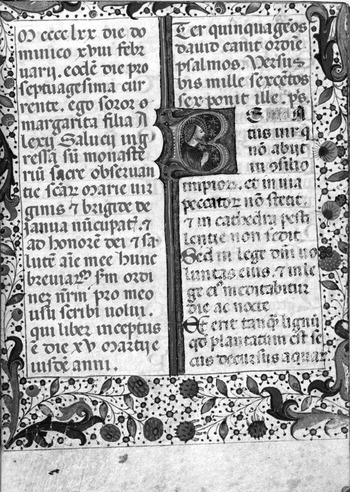 M cccc lxx die do
minico xviii febr
uarii. eodē die pro
septuagesima cur
rente. ego soror o
margarita filia A
lexii Salucij ing
ressa sū monaste
riū sacre observan
tie scāꝝ marie vir
ginis & brigide de
ianua nūcupat'. &
ad honorē dei & sa
lutē aīe mee hunc
breviariū s'm ordi
nez nr̄m pro meo
usu scribi volui.
qui liber inceptus
ē die xv martij e
iusdē anni.
Ter quinquagēos
david canit ordīe
psalmos. Versus
bis mille sexcētos
sex ponit ille. ps.
BEatus vir q
nō abijt
in ɔsilio
impioꝝ. et in via
peccatoꝝ nō stetit.
& in cathedra pesti
lentie non sedit.
Sed in lege dn̄i vo
luntas eius. & in le
ge eiꝰ meditabitur
die ac nocte
Et erit tanqꝫ lignū
qd plantatum est se
cus decursus aquaꝝ